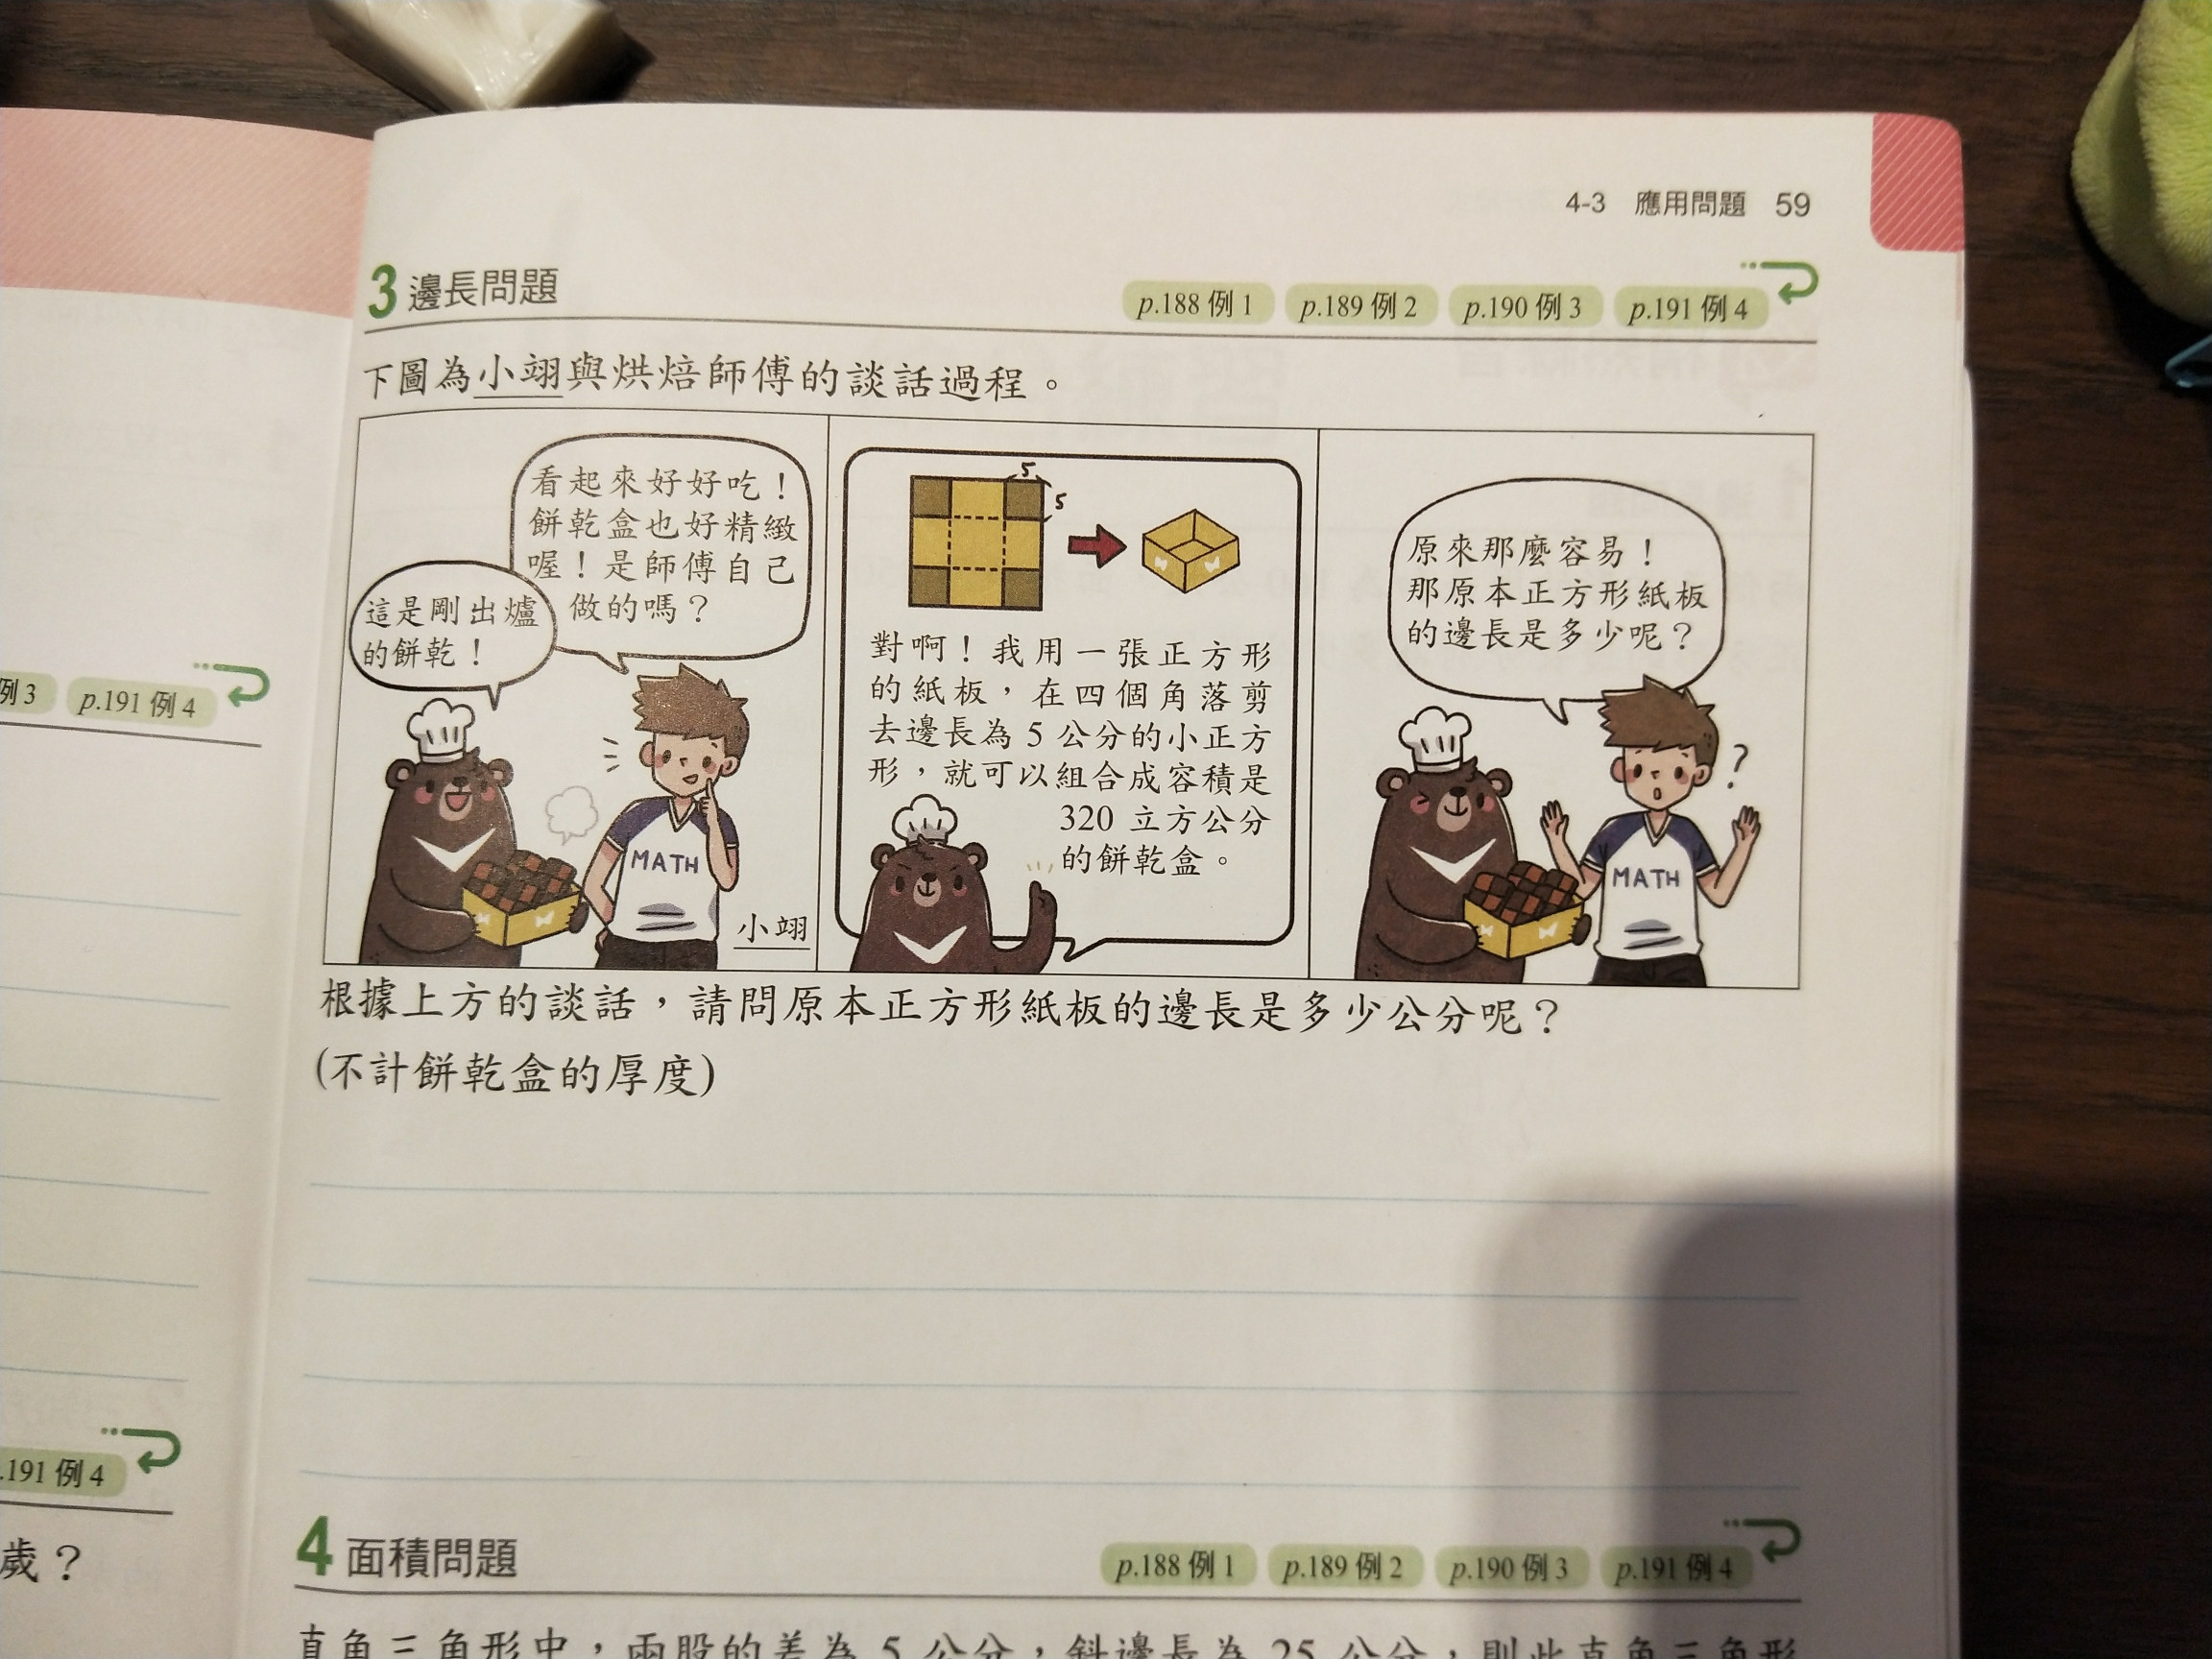 4-3 應用問題 59
3 邊長問題
p.188 例 1 p.189 例 2 p.190 例 3 p.191 例 4
下圖為小翊與烘焙師傅的談話過程。
看起來好好吃！
餅乾盒也好精緻
喔！是師傅自己
做的嗎？
這是剛出爐
的餅乾！
MATH
小翊
5
5
對啊！我用一張正方形
的紙板，在四個角落剪
去邊長為 5 公分的小正方
形，就可以組合成容積是
320 立方公分
的餅乾盒。
原來那麼容易！
那原本正方形紙板
的邊長是多少呢？
?
MATH
根據上方的談話，請問原本正方形紙板的邊長是多少公分呢？
(不計餅乾盒的厚度)
4 面積問題
p.188 例 1 p.189 例 2 p.190 例 3 p.191 例 4
直角三角形中，兩股的差為 5 公分，斜邊長為 25 公分，則此直角三角形
例 3 p.191 例 4
.191 例 4
歲？